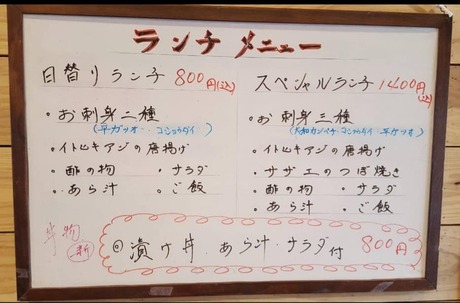 ランチメニュー
日替りランチ 800円(込)
・お刺身二種
(平ガツオ・コショウダイ)
・イトヒキアジの唐揚げ
・酢の物 ・サラダ
・あら汁 ・ご飯
スペシャルランチ 1400円(込)
・お刺身三種
・イトヒキアジの唐揚げ
・サザエのつぼ焼き
・酢の物 ・サラダ
・あら汁 ・ご飯
丼物
新
漬け丼・あら汁・サラダ付 800円